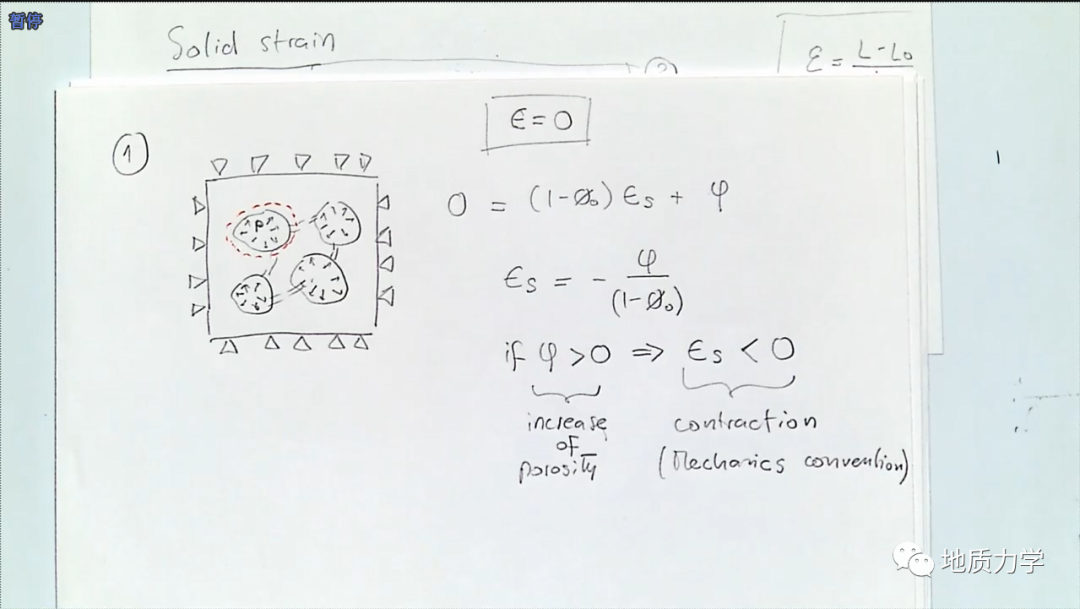 暂停
Solid strain
ε = L-L₀
①
ϵ = 0
P
0 = (1-Ø₀) ϵs + φ
ϵs = - φ/(1-Ø₀)
if φ > 0 ⇒ ϵs < 0
increase of porosity
contraction
(Mechanics convention)
地质力学